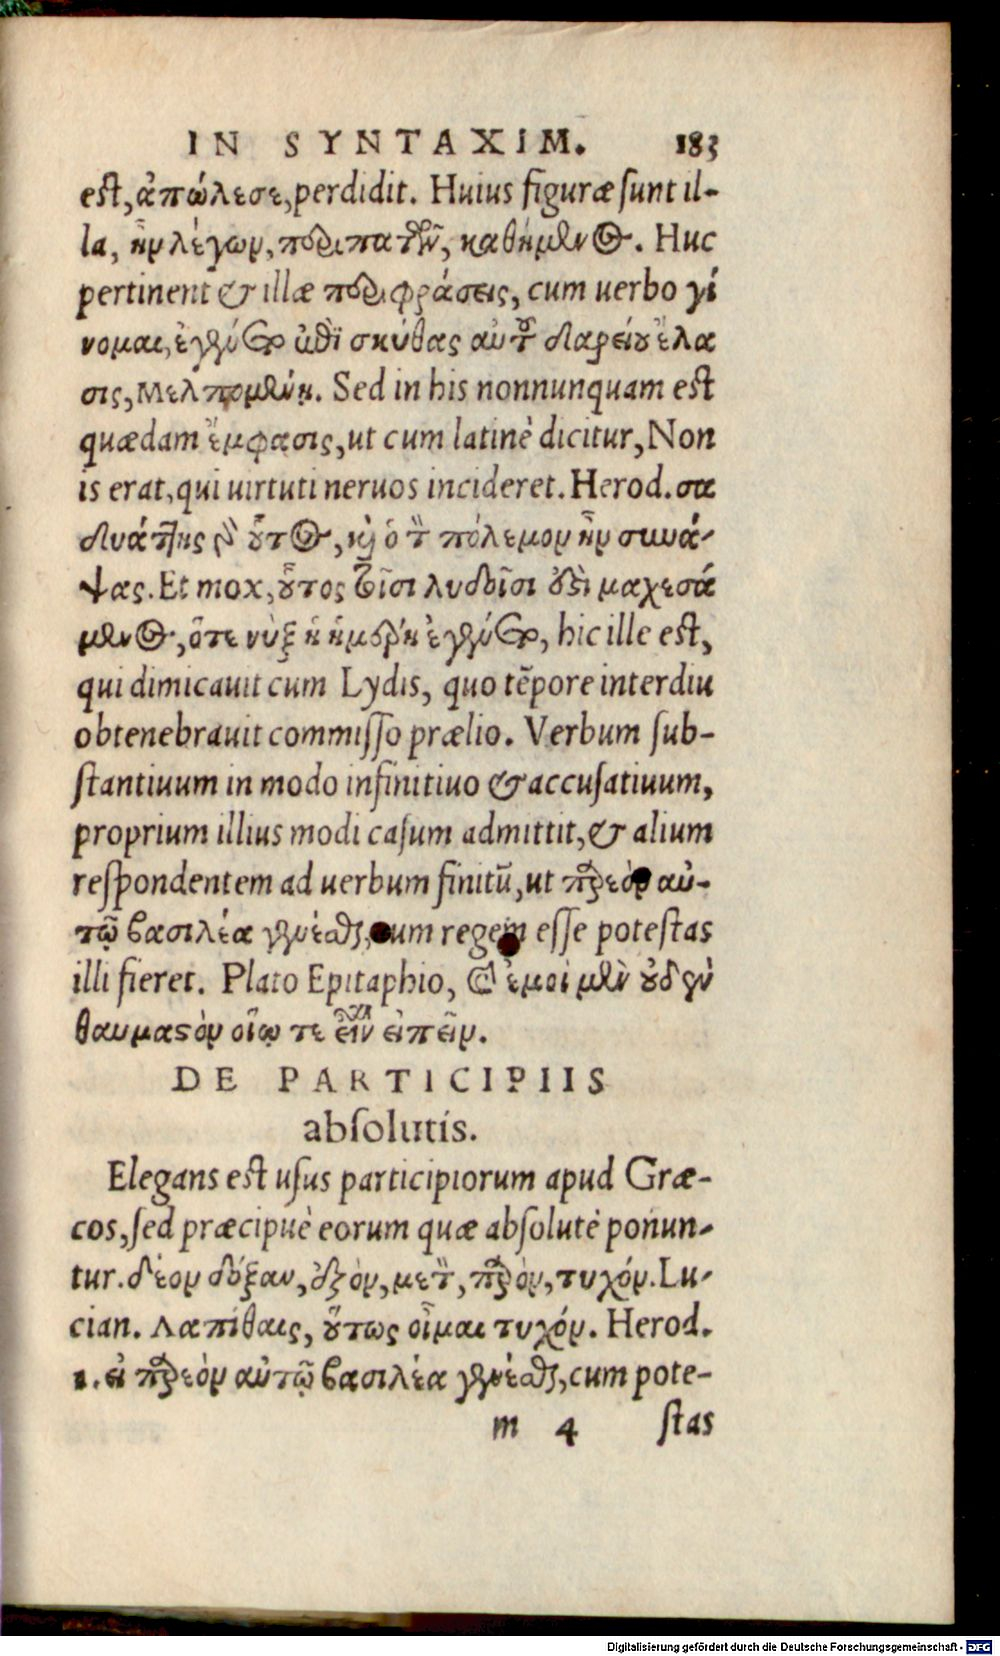 IN SYNTAXIM. 183
est, ἀπώλεσε, perdidit. Huius figuræ sunt il-
la, ἦν λέγων, περιπατῶν, καθήμενος. Huc
pertinent & illæ περιφράσεις, cum uerbo γί
νομαι, ἐγένετο ἐπὶ σκύθας αὐτοῦ δαρείου ἔλα
σις, Μελπομένη. Sed in his nonnunquam est
quædam ἔμφασις, ut cum latinè dicitur, Non
is erat, qui uirtuti neruos incideret. Herod. σα
δυάττης οὗτος, καὶ ὁ τὸν πόλεμον ἦν συνά-
ψας. Et mox, οὗτος τοῖσι λυδοῖσι μαχεσά
μενος, ὅτε νὺξ ἡ ἡμέρη ἐγένετο, hic ille est,
qui dimicauit cum Lydis, quo tẽpore interdiu
obtenebrauit commisso prælio. Verbum sub-
stantiuum in modo infinitiuo & accusatiuum,
proprium illius modi casum admittit, & alium
respondentem ad uerbum finitũ, ut παρεὸν αὐ-
τῷ βασιλέα γενέσθαι, cum regem esse potestas
illi fieret. Plato Epitaphio, ἐμοὶ μὲν οὐδὲν
θαυμαστὸν οἵῳ τε εἶναι εἰπεῖν.
DE PARTICIPIIS
absolutis.
Elegans est usus participiorum apud Græ-
cos, sed præcipuè eorum quæ absolutè ponun-
tur. δέον δόξαν, ἐξὸν, μετὸν, παρὸν, τυχόν. Lu-
cian. Λαπίθαις, οὕτως οἶμαι τυχόν. Herod.
1. εἰ παρεὸν αὐτῷ βασιλέα γενέσθαι, cum pote-
m 4 stas
Digitalisierung gefördert durch die Deutsche Forschungsgemeinschaft - DFG